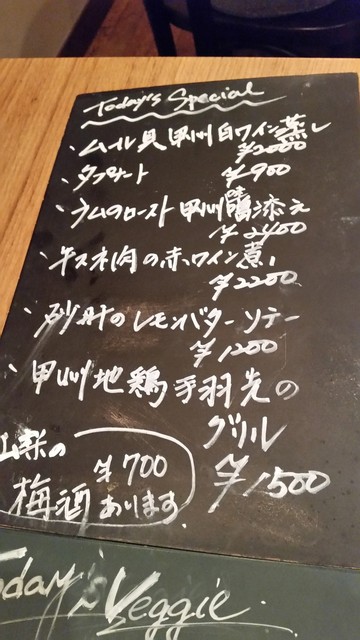 Today's Special
・ムール貝 甲州白ワイン蒸し
¥2000
・タブナード
¥900
・ラムのロースト 甲州味噌添え
¥2400
・牛スネ肉の赤ワイン煮
¥2200
・砂肝のレモンバターソテー
¥1200
・甲州地鶏手羽先の
グリル
¥1500
山梨の
梅酒
¥700
あります
Today's Veggie